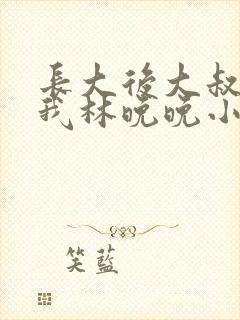 長大後大叔
我林晚晚小
笑藍